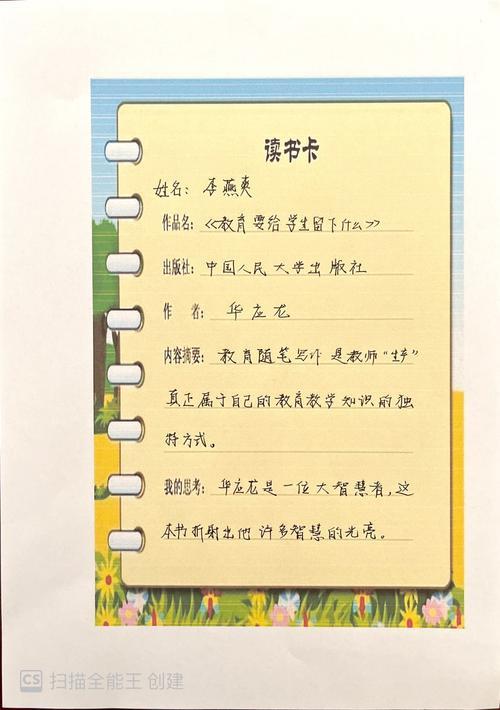 读书卡
姓名：李燕爽
作品名：《教育要给学生留下什么》
出版社：中国人民大学出版社
作 者：华应龙
内容摘要：教育随笔写作是教师“生产”
真正属于自己的教育教学知识的独
特方式。
我的思考：华应龙是一位大智慧者，这
本书折射出他许多智慧的光亮。
CS 扫描全能王 创建